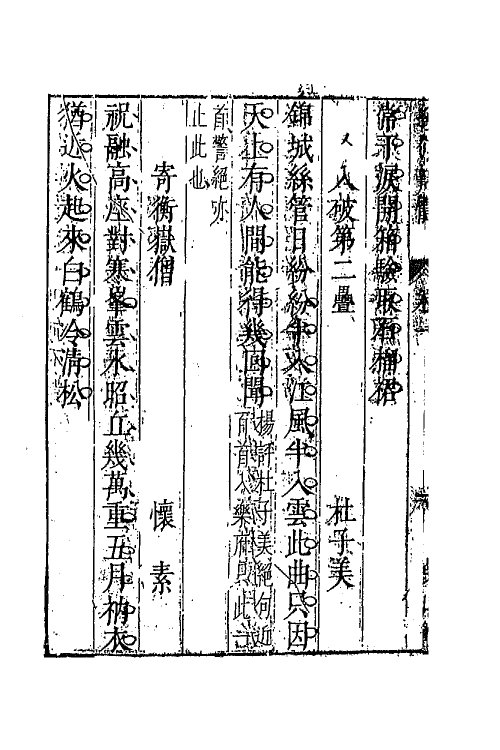 常下淚開箱驗取石榴裙
又 入破第二疊 杜子美
錦城絲管日紛紛半入江風半入雲此曲只因
天上有人間能得幾回聞楊評杜子美絕句近百首
首警絕亦
止此也
寄衡嶽僧 懷素
祝融高座對寒峯雲水昭丘幾萬重五月衲衣
猶近火起來白鶴冷清松